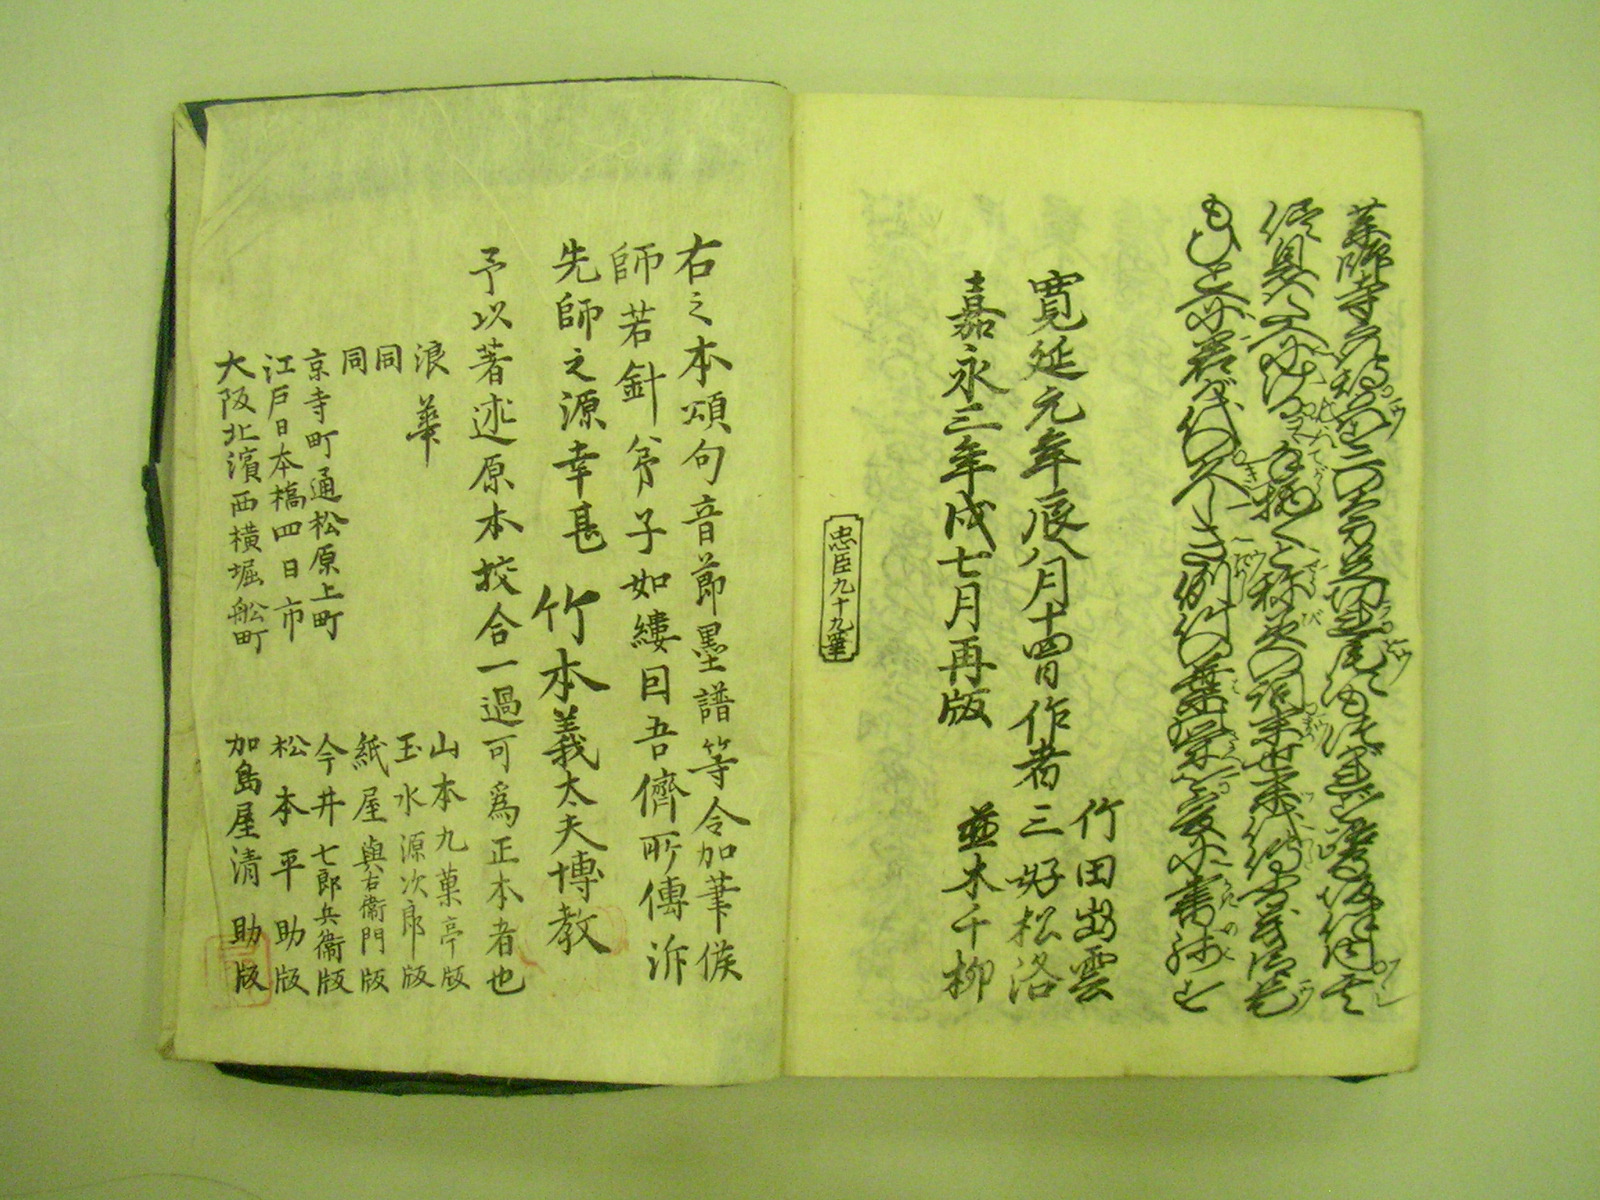 もひとへに君が代の久しき例竹の葉の栄を爰に書残す
寛延元年辰八月十四日作者
竹田出雲
三好松洛
並木千柳
嘉永三年戌七月再版
忠臣九十九筆
右之本頌句音節墨譜等令加筆候
師若針弟子如縷因吾儕所傳泝
先師之源幸甚
竹本義太夫博教
予以著述原本挍合一過可為正本者也
浪華
山本九菓亭版
同
玉水源次郎版
同
紙屋與右衛門版
京寺町通松原上町
今井七郎兵衞版
江戸日本橋四日市
松本平助版
大阪北濱西横堀舩町
加島屋清助版